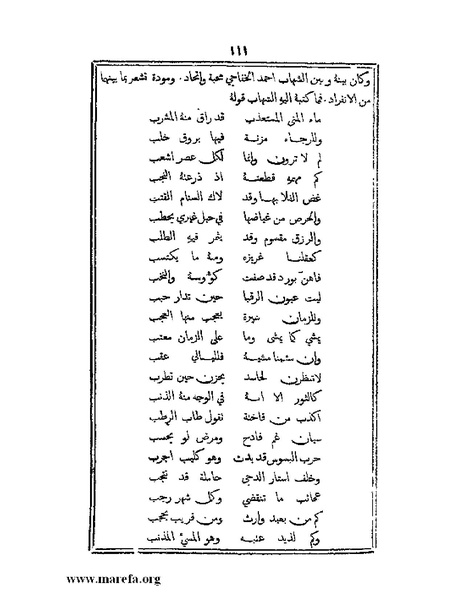 ١١١
وكان بينه وبين الشهاب احمد الخفاجي محبة واتحاد. ومودة تشعر بما بينهما
من الانفراد. فما كتبهُ اليهِ الشهاب قولهُ
ماء المنى المستعذب قد راق منهُ المشرب
وللرجاء مزنة فيها بروق خلب
لم لا ترون وانما لكل عصر اشعب
كم مهمه قطعتهُ اذ ذرعتهُ النجب
غض الفلا بها وقد لاك السنام القتب
والحرص من غباضها في حبل غيري يحطب
والرزق مقسوم وقد يغر فيهِ الطلب
كعقلنا غريزه ومنهُ ما يكتسب
بورد قد صفت كؤوسهُ والنخب
ليت عيون الرقبا حين تدار حبب
وللزمان سيرة يعجب منها العجب
يشي كما يشي وما على الزمان معتب
وان سئمنا فلليالي عقب
لا تنظرن لحاسد بحزن حين تطرب
كالثور الا انهُ في الوجه منهُ الذنب
اكذب من فاختة تقول طاب الرطب
سيان غم فادح ومرض لو يحسب
حرب البسوس قد بدت وهو كليب اجرب
وخلف استار الدجى حاملة قد تنجب
عجائب ما تنقضي وكل شهر رجب
كم من بعيد وارث ومن قريب يحجب
وكم لذيذ عتبهُ وهو المسيء المذنب
www.marefa.org